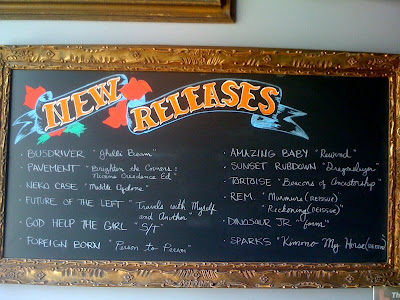 NEW RELEASES
· BUSDRIVER "Jhelli Beam"
· PAVEMENT "Brighten the Corners:
Nicene Creedence Ed"
· NEKO CASE "Middle Cyclone"
· FUTURE OF THE LEFT "Travels with Myself
and Another"
· GOD HELP THE GIRL "S/T"
· FOREIGN BORN "Person to Person"
· AMAZING BABY "Rewind"
· SUNSET RUBDOWN "Dragonslayer"
· TORTOISE "Beacons of Ancestorship"
· R.E.M. "Murmur" (REISSUE)
"Reckoning" (REISSUE)
· DINOSAUR JR. "Farm"
· SPARKS "Kimono My House"